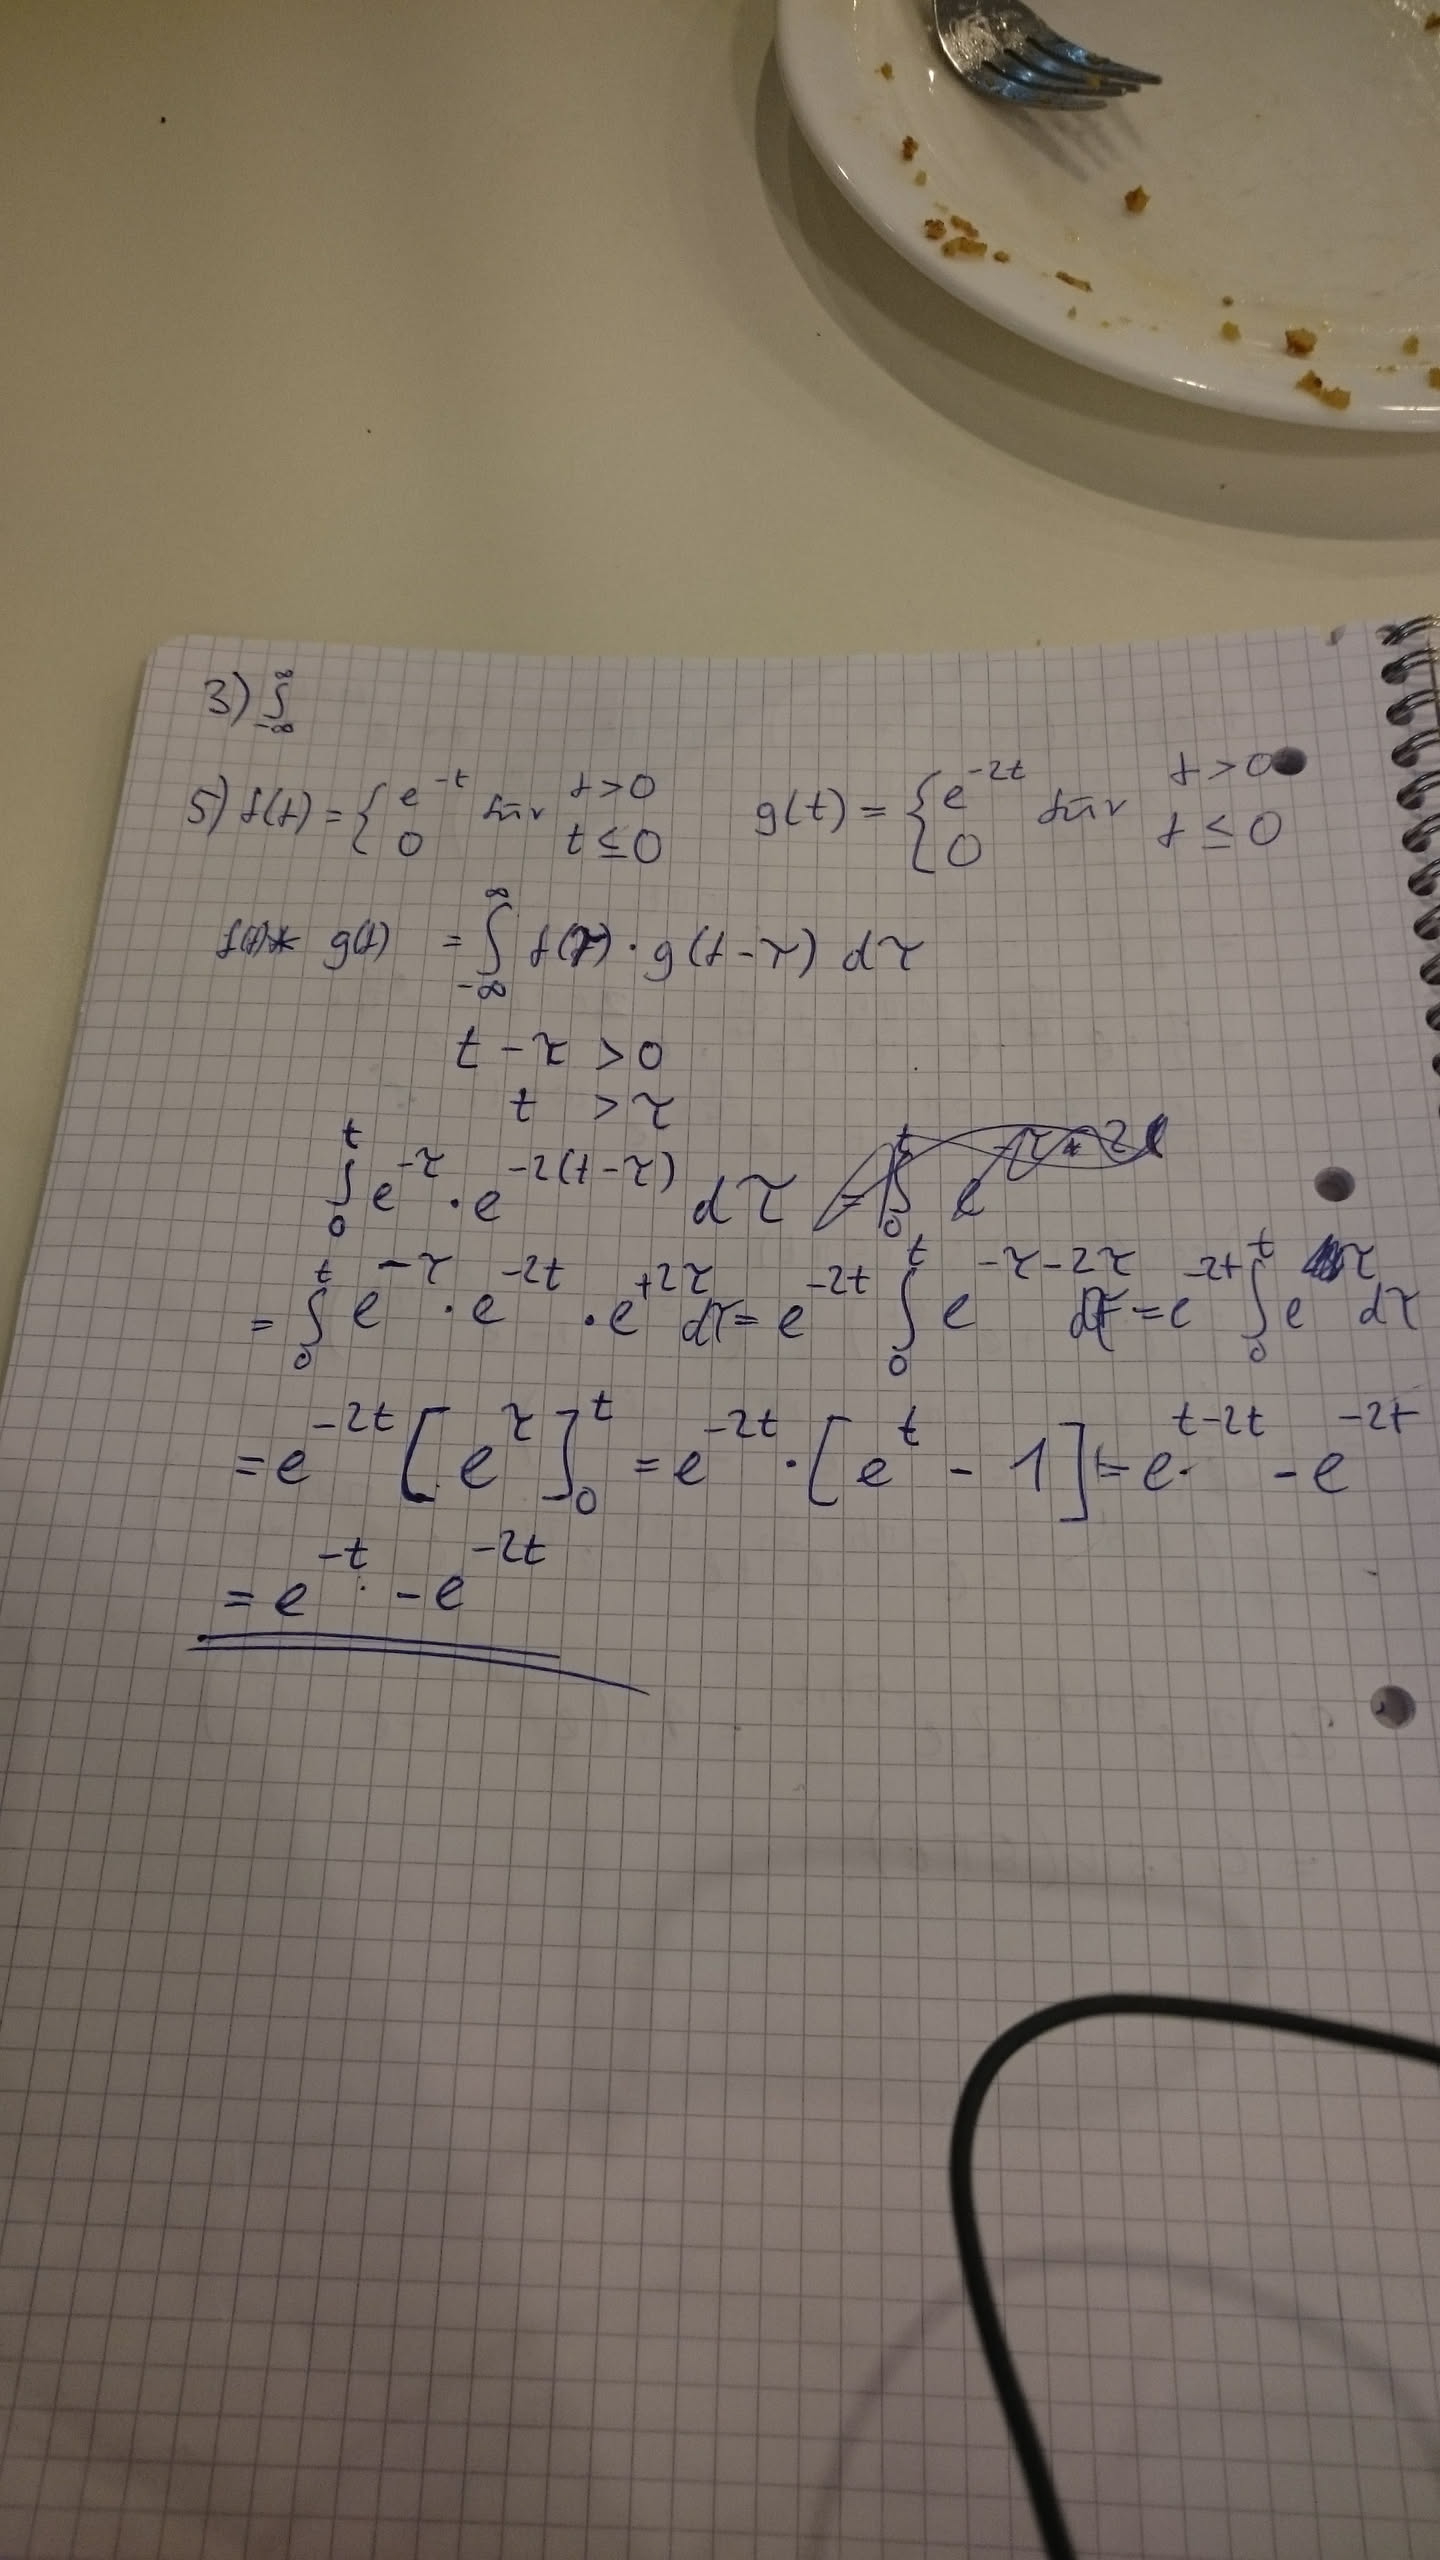 3) ∫_{-∞}^{∞}
5) f(t) = { e^{-t} für t > 0 ; 0 t ≤ 0    g(t) = { e^{-2t} für t > 0 ; 0 t ≤ 0
f(t) * g(t) = ∫_{-∞}^{∞} f(τ) · g(t - τ) dτ
t - τ > 0
t > τ
∫_0^t e^{-τ} · e^{-2(t-τ)} dτ
= ∫_0^t e^{-τ} · e^{-2t} · e^{+2τ} dτ = e^{-2t} ∫_0^t e^{-τ-2τ} dτ = e^{-2t} ∫_0^t e^{τ} dτ
= e^{-2t} [e^{τ}]_0^t = e^{-2t} · [e^t - 1] = e^{t-2t} - e^{-2t}
= e^{-t} - e^{-2t}